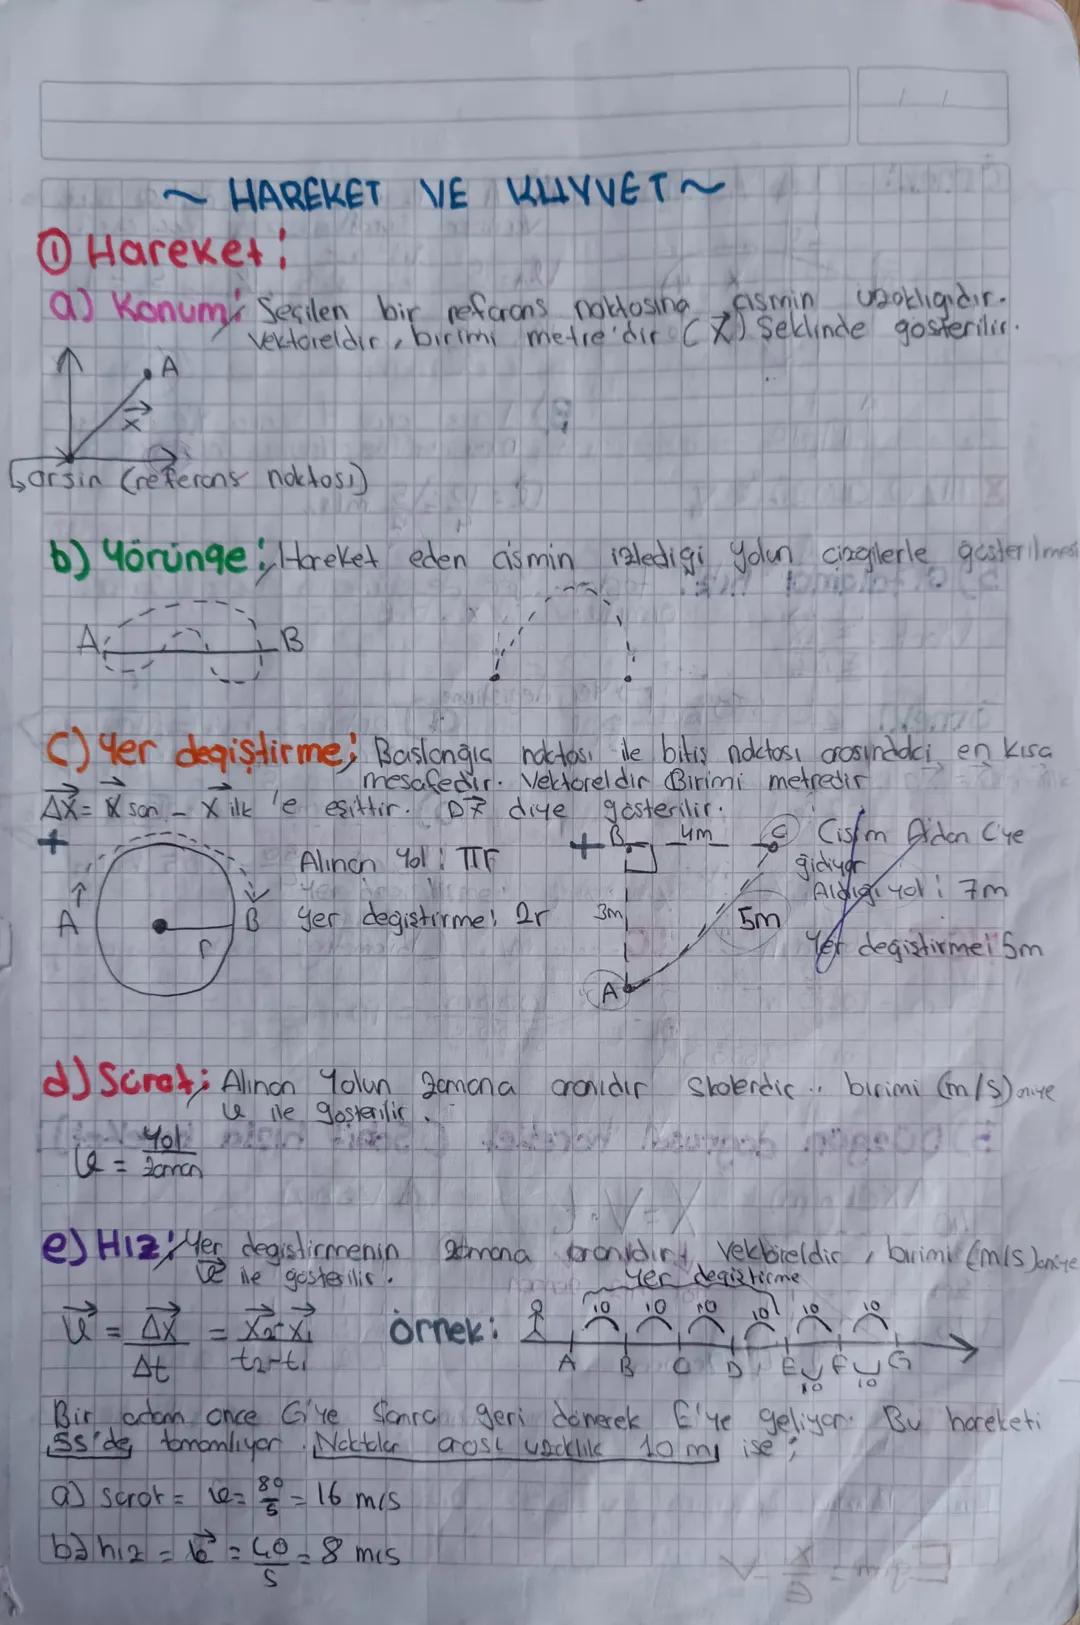 ~ HAREKET VE KUVVET ~
① Hareket:
a) Konum: Seçilen bir referans noktasına cismin uzaklığıdır.
Vektöreldir, birimi metre'dir (X⃗) Şeklinde gösterilir.
A
x⃗
↳ orjin (referans noktası)
b) Yörünge: Hareket eden cismin izlediği yolun çizgilerle gösterilmesi
A B
c) Yer değiştirme: Başlangıç noktası ile bitiş noktası arasındaki en kısa
mesafedir. Vektöreldir Birimi metredir
ΔX⃗ = X⃗ son - X⃗ ilk 'e eşittir. DX⃗ diye gösterilir.
+ Alınan Yol: πr
A B r
Yer değiştirme: 2r
+ B 4m C Cisim A'dan C'ye
gidiyor
Aldığı yol: 7m
3m 5m
Yer değiştirme: 5m
A
d) Sürat: Alınan Yolun zamana oranıdır Skalerdir.. birimi (m/s)aniye
ϑ ile gösterilir.
ϑ = Yol / zaman
e) Hız: Yer değiştirmenin zamana oranıdır, vektöreldir, birimi (m/s)aniye
ϑ⃗ ile gösterilir.
yer değiştirme
ϑ⃗ = ΔX⃗ / Δt = X⃗₂-X⃗₁ / t₂-t₁
Örnek: 10 10 10 10 10 10
A B C D E F G
10 10
Bir adam önce G'ye Sonra geri dönerek E'ye geliyor. Bu hareketi
5s'de tamamlıyor. Noktalar arası uzaklık 10 m ise;
a) sürat = ϑ = 80/5 = 16 m/s
b) hız = ϑ⃗ = 40/5 = 8 m/s